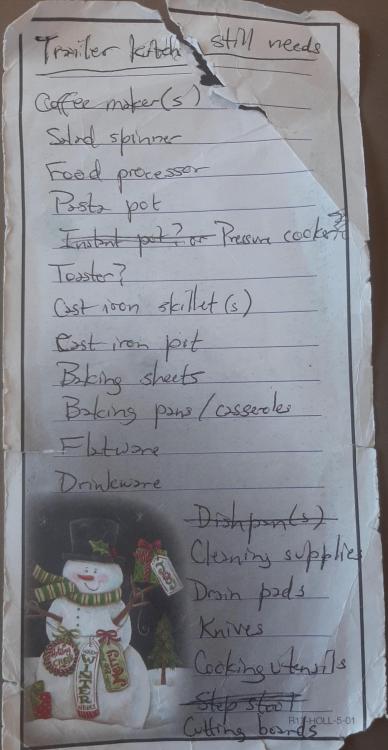 Trailer kitch still needs
Coffee maker(s)
Salad spinner
Food processor
Pasta pot
Instant pot? or Pressure cooker?
Toaster?
Cast iron skillet(s)
Cast iron pot
Baking sheets
Baking pans/casseroles
Flatware
Drinkware
Dishpan(s)
Cleaning supplies
Drain pads
Knives
Cooking utensils
Step stool
Cutting boards
WINTER
R17-HOLL-5-01